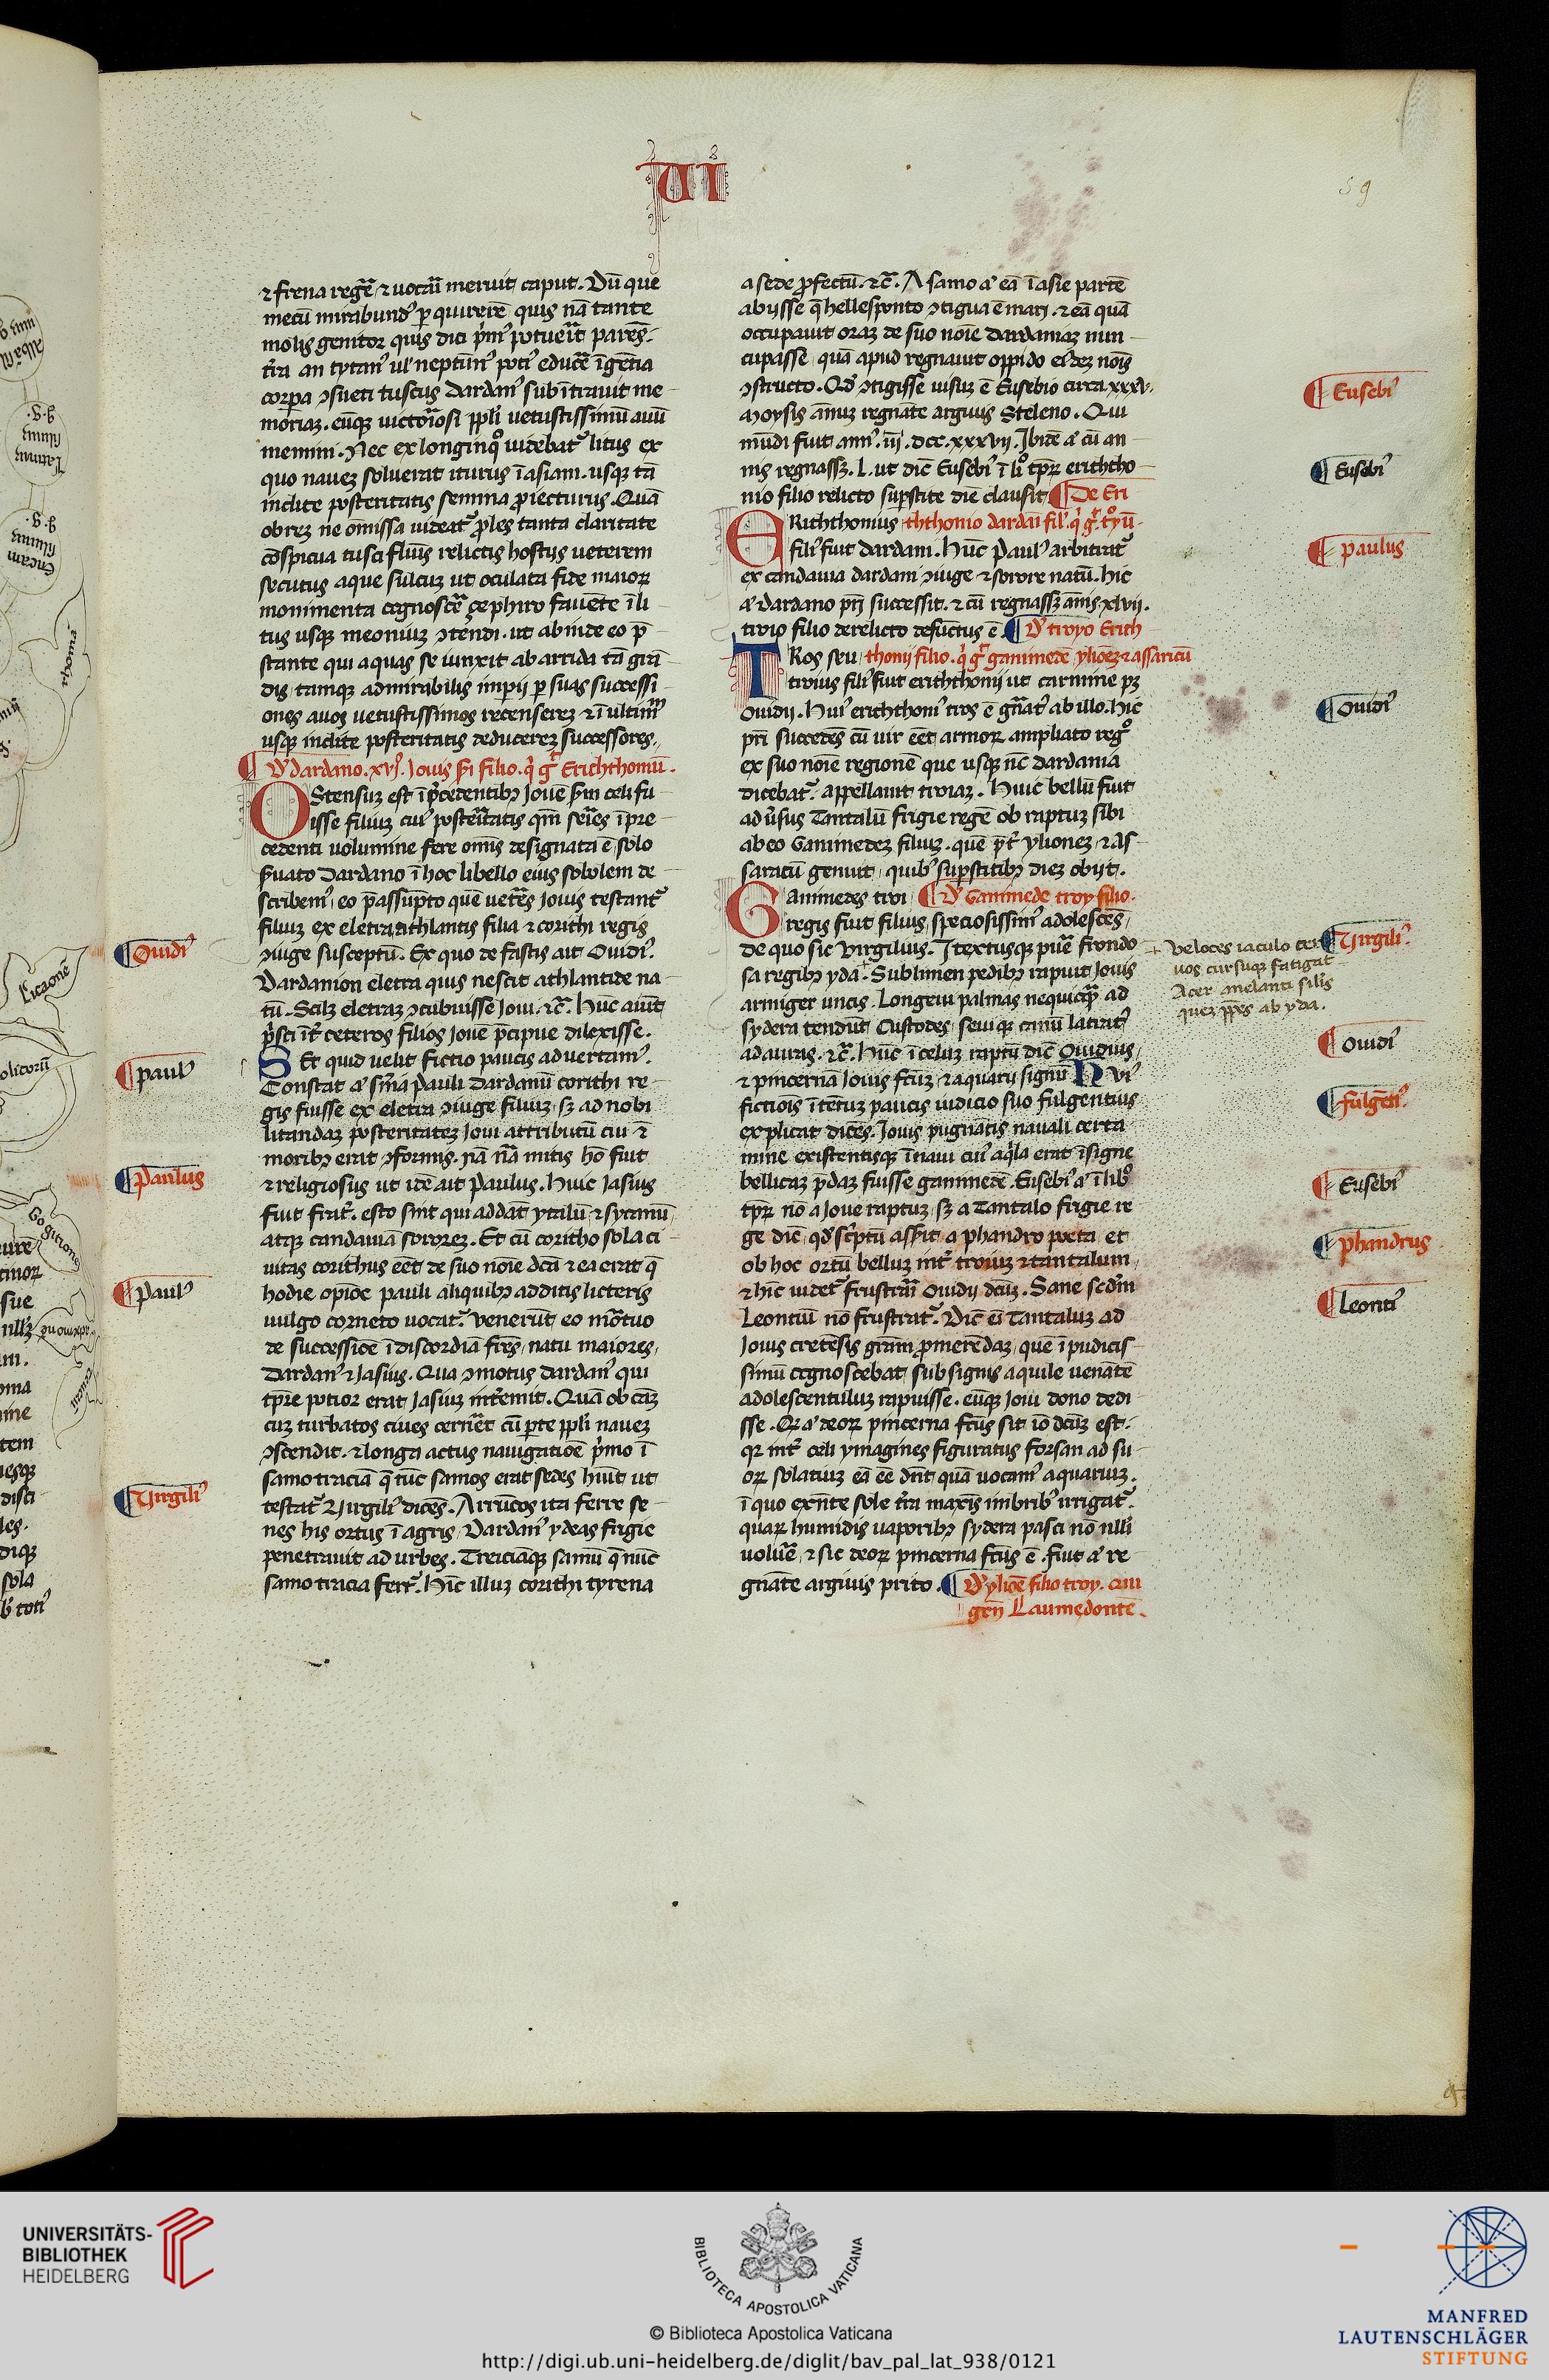 VI
59
⁊ frena regē ⁊ uocaī meruit caput. Dū que
mecū mirabund᾽ ꝑquirerē quis nā tante
molis genitor quis dici p̄m᾽ potuerat parēs.
t̄ra an tytan᾽ ul᾽ neptūn᾽ poti᾽ educē īgētia
corpa ꝯsueti tuscus dardan᾽ subītrauit me
moriaz. eūqꝫ uictoriosi ppl᾽i uetustissimū auū
memini. Nec ex longinqͦ uidebat᾽ litus ex
quo nauez soluerat iturus ī asiam. usqꝫ tā
inclite posteritatis semina proiecturus. Quā
ob rez ne omissa uideat᾽ proles tanta claritate
cōspicua tusci fluīs relictis hostijs ueterem
secutus aque sulcuz ut oculata fide maioꝝ
monimenta cognoscē zephiro fauēte ī li
tus usqꝫ meoniuz ꝯtēdi. ut ab inde eo p̄
stante qui aquas se iunxit ab arrida tā grā
dis tamqꝫ admirabilis impij ꝑ suas successi
ones auos uetustissimos recenserez ⁊ ī ultimū
usqꝫ inclite posteritatis deducerez successores.
¶ D᾽ dardano .xvj. Jouis s̄i filio. q᾽ g᾽ Erichthoniū.
OStensuz est ī p̄cedentibꝫ Jouē s̄m celi fu
isse filiuz cui᾽ posteritatis qm̄ series ī pre
cedenti uolumine fere omīs designata ē, solo
s̄uato Dardano ī hoc libello eius sobolem de
scribem᾽, eo p̄assūpto quē uetēs Jouis testant᾽
filiuz ex eletra athlantis filia ⁊ corithi regis
ꝯiuge susceptū. Ex quo de fastis ait Ouidi᾽.
Dardanion eletra quis nescit athlantide na
tū. Scilz eletraz ꝯcubuisse Joui. ⁊c̄. Hūc aiūt
p᾽sci īt᾽ ceteros filios Jouē p̄cipue dilexisse.
SEt quid uelit fictio paucis aduertam᾽.
Constat a᾽ s̄nīa Pauli Dardanū corithi re
gis fuisse ex eletra ꝯiuge filiuz, sꝫ ad nobi
litandaz posteritatez Joui attributū cui᾽ ī
moribꝫ erat ꝯformis. nā n̄a mitis hō fuit
⁊ religiosus ut idē ait Paulus. Huic Jasius
fuit frat᾽. esto sint qui addāt ytalū ⁊ sycanū
atqꝫ candauiā sororez. Et cū coritho sola ci
uitas corithus eēt de suo noīe dcā ⁊ ea erat q̄
hodie opiōe pauli aliquibꝫ additis licteris
uulgo corneto uocat᾽. Venerūt eo mortuo
de successiōe ī discordiā frēs, natu maiores,
Dardan᾽ ⁊ Jasius. Qua ꝯmotus dardan᾽ qui
tpre potior erat Jasiuz interemit. Quā ob cāz
cuz turbatos ciues cerneret cū ꝑte ppl᾽i nauez
ꝯscendit. ⁊ longa actus nauigatiōe p᾽mo ī
samotraciā q̄ tūc samos erat sedes hūit ut
testat᾽ Virgili᾽ dicēs. Arrūcos ita ferre se
nes his ortus ī agris, Dardan᾽ ydeas frigie
penetrauit ad urbes. Treiciāqꝫ samū q̄ nūc
samotracia fert᾽. Hīc illuz corithi tyrena
a sede profectū. ⁊c̄. A samo a᾽ eā ī asie partē
abijsse q̄ hellesponto ꝯtigua ē mari. ⁊ eā quā
occupauit oraz de suo noīe dardaniaz nun
cupasse, quā apud regnauit oppido ei᾽dez noīs
ꝯstructo. Qd᾽ ꝯtigisse uisuz ē Eusebio circa xxxv.
Moysis annuz regnāte argiuis Steleno. Qui
mūdi fuit ann᾽ .iij. dcc. xxxvij. Ibidē a᾽ cū an
nis regnassꝫ .L. ut dic̄ Eusebi᾽ ī liͦ tpꝝ erichtho
nio filio relicto superstite diē clausit. ¶ De Eri
ERichthonius thonio dardāi fil᾽. q᾽ g᾽ troyū.
fili᾽ fuit dardani. Hūc Paul᾽ arbitrat᾽
ex candauia dardani ꝯiuge ⁊ sorore natū. Hic
a᾽ dardano pr̄i successit. ⁊ cū regnassꝫ annis .xlvij.
troio filio derelicto defūctus ē. ¶ D᾽ troyo Erich
TRos seu thonij filio. q᾽ g᾽ ganimedē ylioēz ⁊ assaricū
troius fili᾽ fuit erichthonij ut carmine pꝫ
Ouidij. Hui᾽ erichthoni᾽ tros ē gn̄at᾽ ab illo. Hic
pr̄i succedēs cū uir eēt armoꝝ ampliato regͦ
ex suo noīe regionē que usqꝫ nc̄ dardania
dicebat᾽. appellauit troiaz. Huic bellū fuit
aduersus Tantalū frigie regē ob raptuz sibi
ab eo Ganimedez filiuz. quē p̄t᾽ ylionez ⁊ as
saracū genuit, quibꝫ superstitibꝫ diez obijt.
GAnimedes troi ¶ D᾽ Ganimede troy filio.
regis fuit filius, speciosissim᾽ adolescēs,
de quo sic Virgilius. Itextusqꝫ puē frondo
sa regibꝫ yda. Sublimen pedibꝫ rapuit Jouis
armiger uncis. Longeui palmas nequicqꝫ ad
sydera tendūt custodes, seuiqꝫ canū latrat᾽
ad auras. ⁊c̄. Hūc ī celuz raptū dic̄ Ouidius,
⁊ pincernā Jouis fcūz, ⁊ aquarij signū. HVi᾽
fictiōis ītētuz paucis iudicio suo fulgentius
explicat dicēs. Jouis pugnātis nauali certa
mine existentisqꝫ ī naui cui᾽ aq᾽la erat īsigne
bellicaz p̄daz fuisse ganimedē. Eusebi᾽ a᾽ ī libͦ
tpꝝ nō a Joue raptuz, sꝫ a Tantalo frigie re
ge dic̄ qd᾽ sc᾽ptū asserit a phandro poeta et
ob hoc ortū belluz int᾽ troiuz ⁊ tantalum,
⁊ hīc uidet᾽ frustrari Ouidij dcūz. Sane scd᾽m
Leontiū nō frustrat᾽. Dic̄ ei᾽ Tantaluz ad
Jouis cretēsis gr̄am promerēdaz, quē ipudicis
simū cognoscebat, sub signis aquile uenātē
adolescentuluz rapuisse. eūqꝫ Joui dono dedi
sse. Qr a᾽ deoꝝ pincerna fcūs sit iō dcūz est.
qr int᾽ celi ymagines figuratus forsan ad su
oꝝ solatiuz eā eē dn̄t quā uocam᾽ aquariuz.
ī quo exn̄te sole t̄ra maxīs imbribꝫ irrigat᾽.
quaꝝ humidis uaporibꝫ sydera pasci nō nlli᾽
uoluē, ⁊ sic deoꝝ pincerna fcūs ē. fuit a᾽ re
gnāte argiuis prito. ¶ D᾽ ylioē filio troy. qui
gen̄ Laumedontē.
¶ Ouidi᾽
¶ Paul᾽
¶ Paulus
¶ Paul᾽
¶ Virgili᾽
¶ Eusebi᾽
¶ Eusebi᾽
¶ Paulus
¶ Ouidi᾽
¶ Virgili᾽.
Veloces iaculo cer
uos cursuqꝫ fatigat
Acer anelanti silis
quez ppes ab yda.
¶ Ouidi᾽
¶ fulgēti᾽.
¶ Eusebi᾽
¶ Phandrus
¶ Leonti᾽
UNIVERSITÄTS-
BIBLIOTHEK
HEIDELBERG
BIBLIOTECA APOSTOLICA VATICANA
© Biblioteca Apostolica Vaticana
http://digi.ub.uni-heidelberg.de/diglit/bav_pal_lat_938/0121
MANFRED
LAUTENSCHLÄGER
STIFTUNG